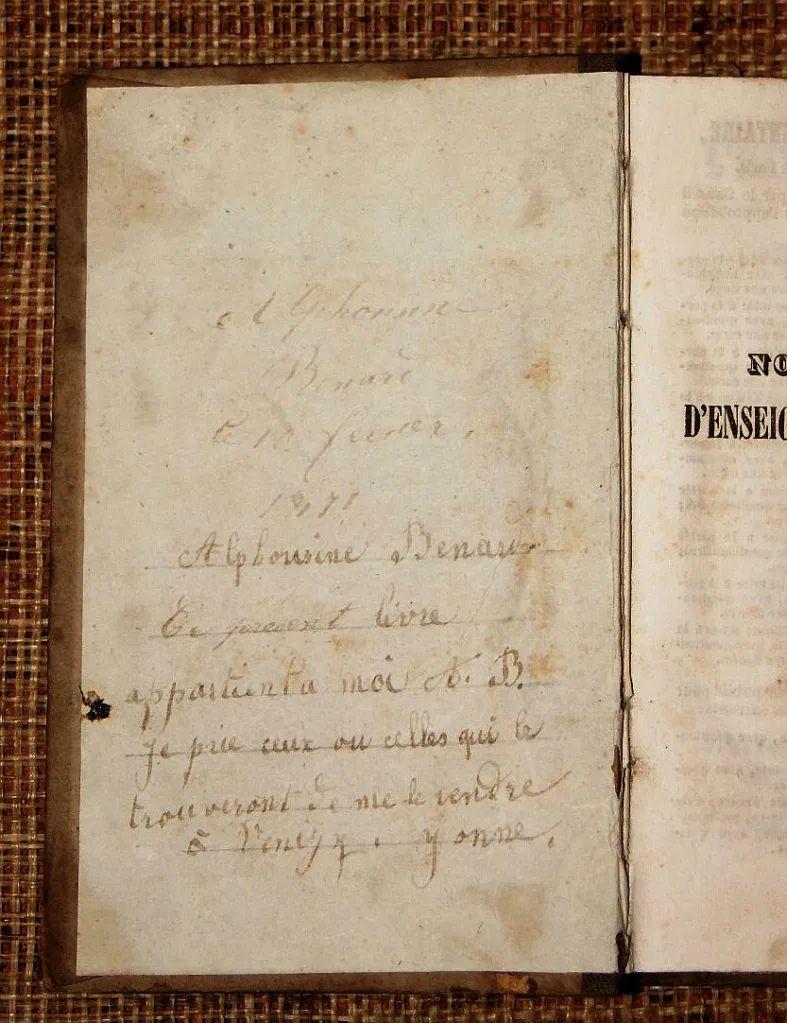 Alphonsine
Benard
le 10 fevrier,
1871
Alphousine Benard
Ce présent livre
appartient a moi A. B.
Je prie ceux ou celles qui le
trouveront de me le rendre
à Venizy. Yonne.
NO
D'ENSEIG